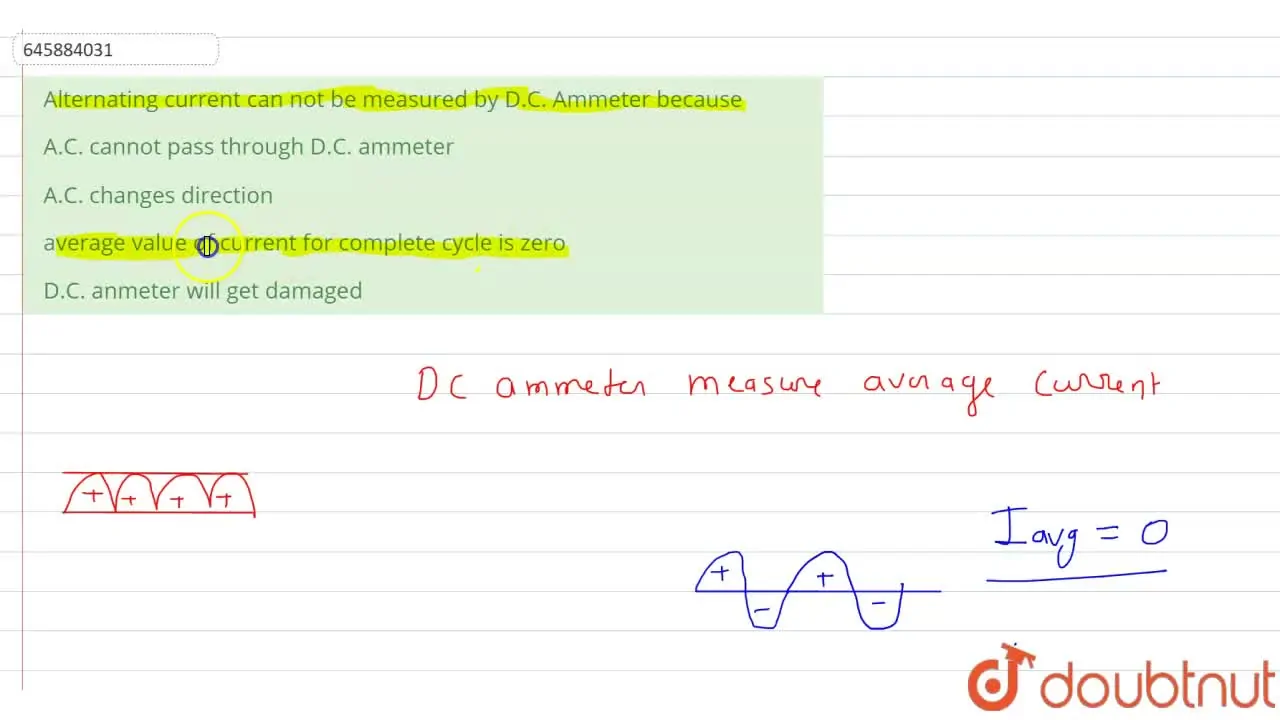 645884031
Alternating current can not be measured by D.C. Ammeter because
A.C. cannot pass through D.C. ammeter
A.C. changes direction
average value of current for complete cycle is zero
D.C. anmeter will get damaged
DC ammeter measure average current
+ + + +
I avg = 0
+ - + -
doubtnut